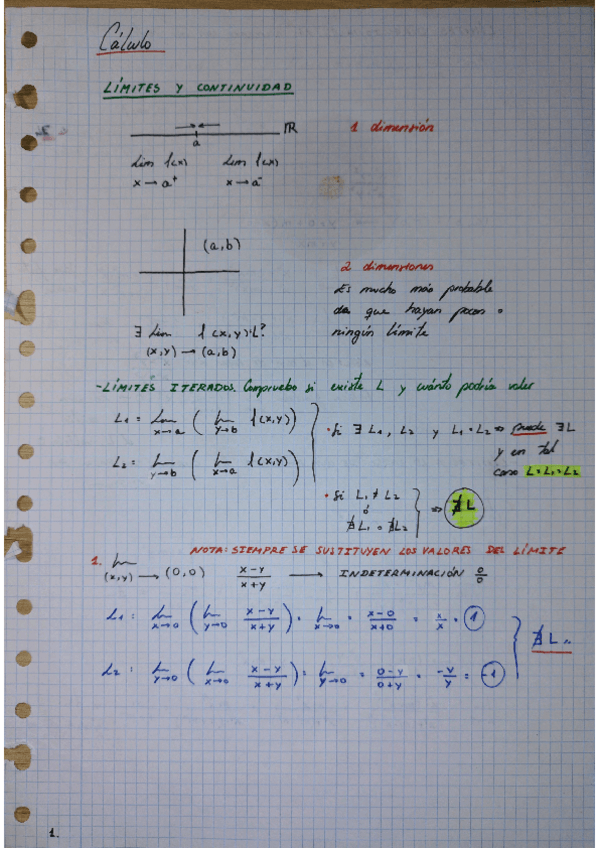 Cálculo
LÍMITES Y CONTINUIDAD
ℝ
1 dimensión
a
Lim f(x)   Lim f(x)
x→a⁺   x→a⁻
(a,b)
2 dimensiones
Es mucho más probable
de que hayan pocos o
ningún límite
∃ Lim f(x,y)=L?
(x,y)→(a,b)
-LÍMITES ITERADOS. Compruebo si existe L y cuánto podría valer
L₁ = Lim x→a ( Lim y→b f(x,y) )
L₂ = Lim y→b ( Lim x→a f(x,y) )
• Si ∃ L₁, L₂ y L₁=L₂ ⇒ puede ∃ L
y en tal
caso L=L₁=L₂
• Si L₁ ≠ L₂
ó
∄ L₁ = ∄ L₂
⇒ ∄ L
NOTA: SIEMPRE SE SUSTITUYEN LOS VALORES DEL LÍMITE
1. Lim (x,y)→(0,0) (x-y)/(x+y) → INDETERMINACIÓN 0/0
L₁ = Lim x→0 ( Lim y→0 (x-y)/(x+y) ) = Lim x→0 = (x-0)/(x+0) = x/x = 1
L₂ = Lim y→0 ( Lim x→0 (x-y)/(x+y) ) = Lim y→0 = (0-y)/(0+y) = -y/y = -1
∄ L
1.